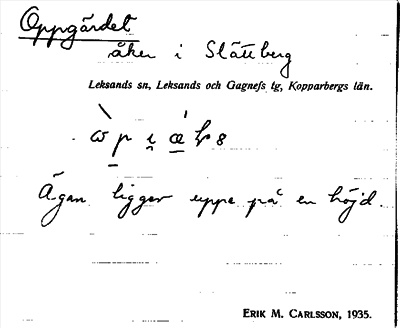 Oppgärdet
åker i Slättberg
Leksands sn, Leksands och Gagnefs tg, Kopparbergs län.
Ägan ligger uppe på en höjd.
ERIK M. CARLSSON, 1935.